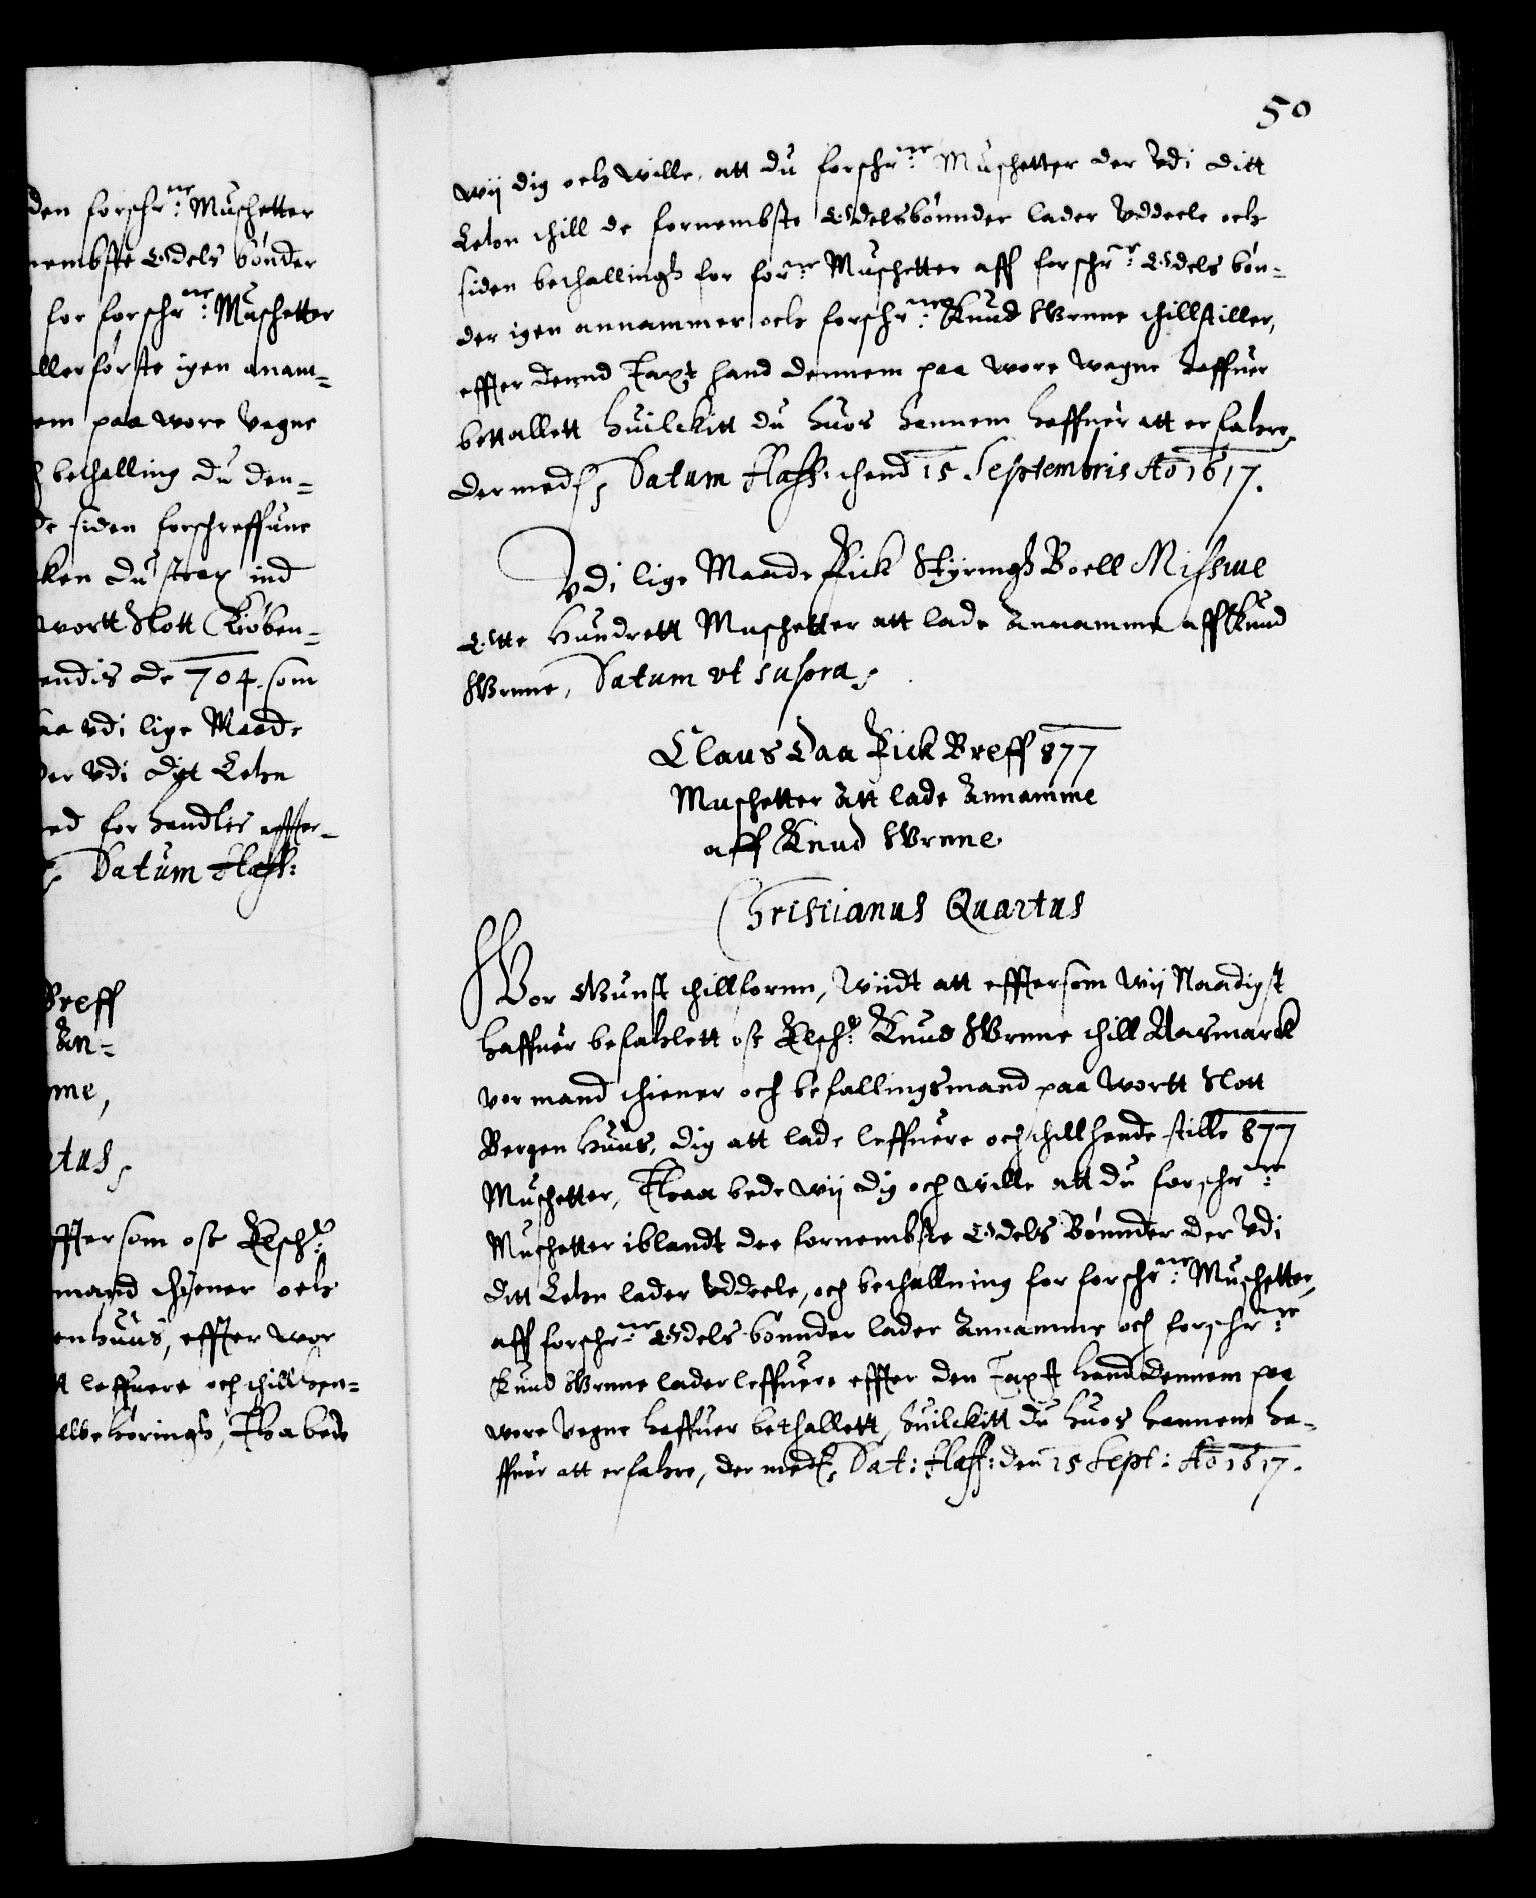 den forschrne: Muschetter
nembste Odels bönder
for forschrne: Muschetter
allerförste igen anam-
em paa wore Vegne
bethalling du den-
de siden forschreffune
ken du strax ind
wortt Slott Kiöben-
endis de 704. som
aa vdi lige Maade
der vdi dyt Lehn
ed forhandlis effter-
Datum Haff:
Breff
An-
nne,
rtus,
effter som oss Elsch:
mand thiener och
enhuus, effter wor
t leffuere och thill hen-
ellbehöringh, Tha bede
50
wij dig och wille, att du forschrne: Muschetter der Vdi ditt
Lehn thill de fornembste Odelsbönnder lader Vddeele och
siden bethallingh for forne: Muschetter aff forschrne: Odels bön-
der igen annammer och forschrne: Knud Wrnne thillstiller,
effter dennd Taxt hand dennem paa wore wegne haffuer
bettallett huilckitt du huos hannem haffuer att erfahre,
dermed Datum Haff. thend 15 Septembris Ao 1617.
Vdi lige Maade Fick Styringh Boell Missiue
Otte hundrett Muschetter att lade Annamme aff Knud
Wrnne, Datum vt supra,
Claus Daa Fick Breff 877
Muschetter Att lade Annamme
aff Knud Wrnne
Christianus Quartus
Wor Gunst thillfornn, Wiidt att efftersom wij Naadigst
haffuer befahlett oss Elsch: Knud Wrnne thill Aasmarck
vor mand thiener och befallingsmand paa wortt Slott
Bergen huus, dig att lade leffuere och thillhende stille 877
Muschetter, Thaa bede wij dig och wille att du forschrne:
Muschetter iblandt dee fornembste Odels Bönnder der Vdi
ditt Lehn lader Vddeele, och bethallning for forschrne: Muschetter,
aff forschrne: Odels bönnder lader Annamme och forschrne:
Knud Wrnne lader leffuere effter den Taxt hand dennem paa
wore Vegne haffuer bethallett, huilckitt du huos hannem ha-
ffuer att erfahre, dermed Dat: Haff: den 15 Sept: Ao 1617.